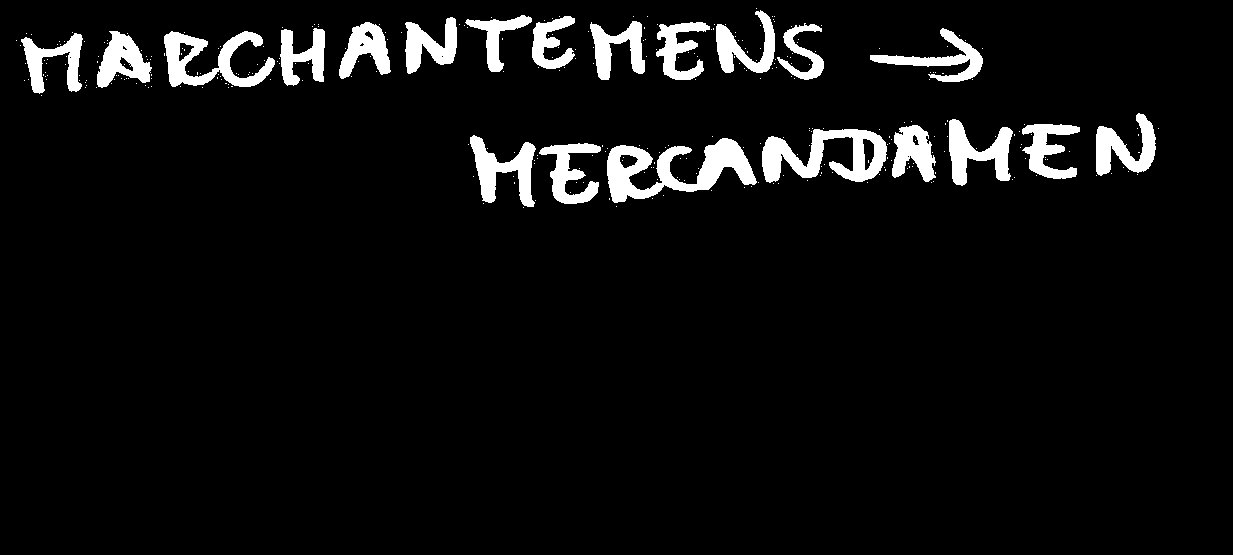 MARCHANTEMENS →
MERCANDAMEN